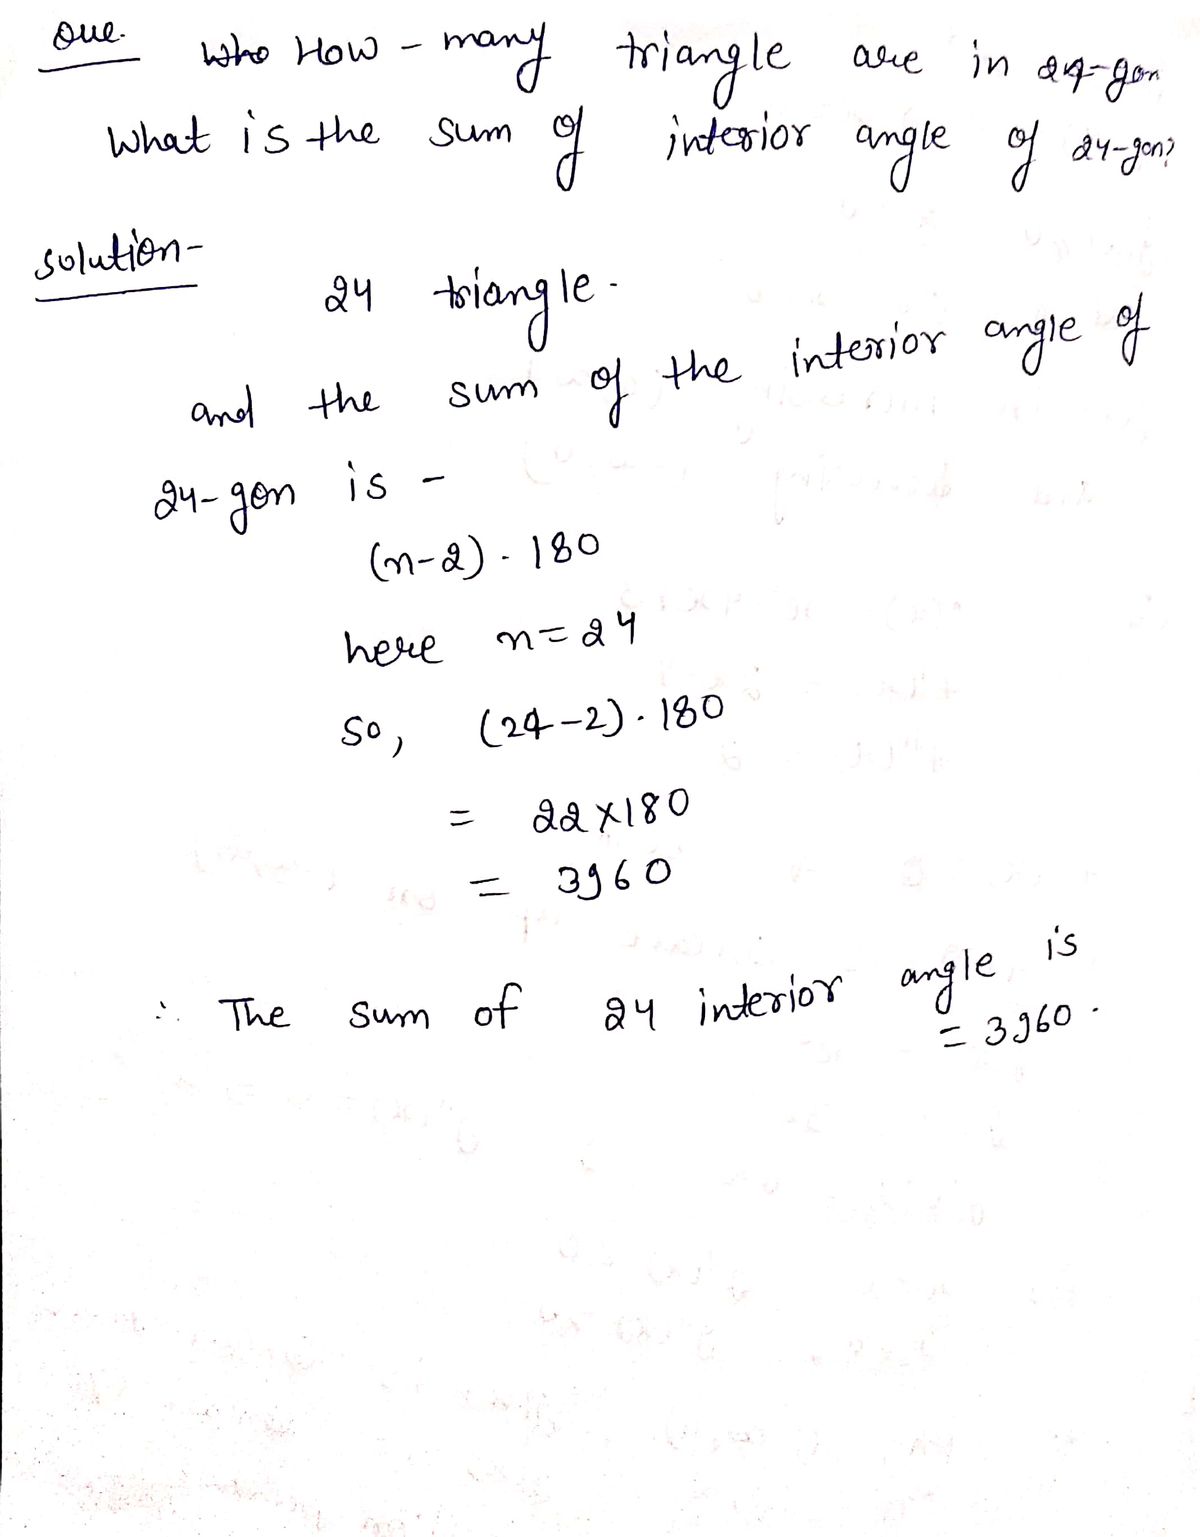 Que. Who How - many triangle are in 24-gon
What is the sum of interior angle of 24-gon?
Solution-
24 triangle.
and the sum of the interior angle of
24-gon is -
(n-2) . 180
here n=24
So, (24-2) . 180
= 22 x 180
= 3960
∴ The sum of 24 interior angle is
= 3960.